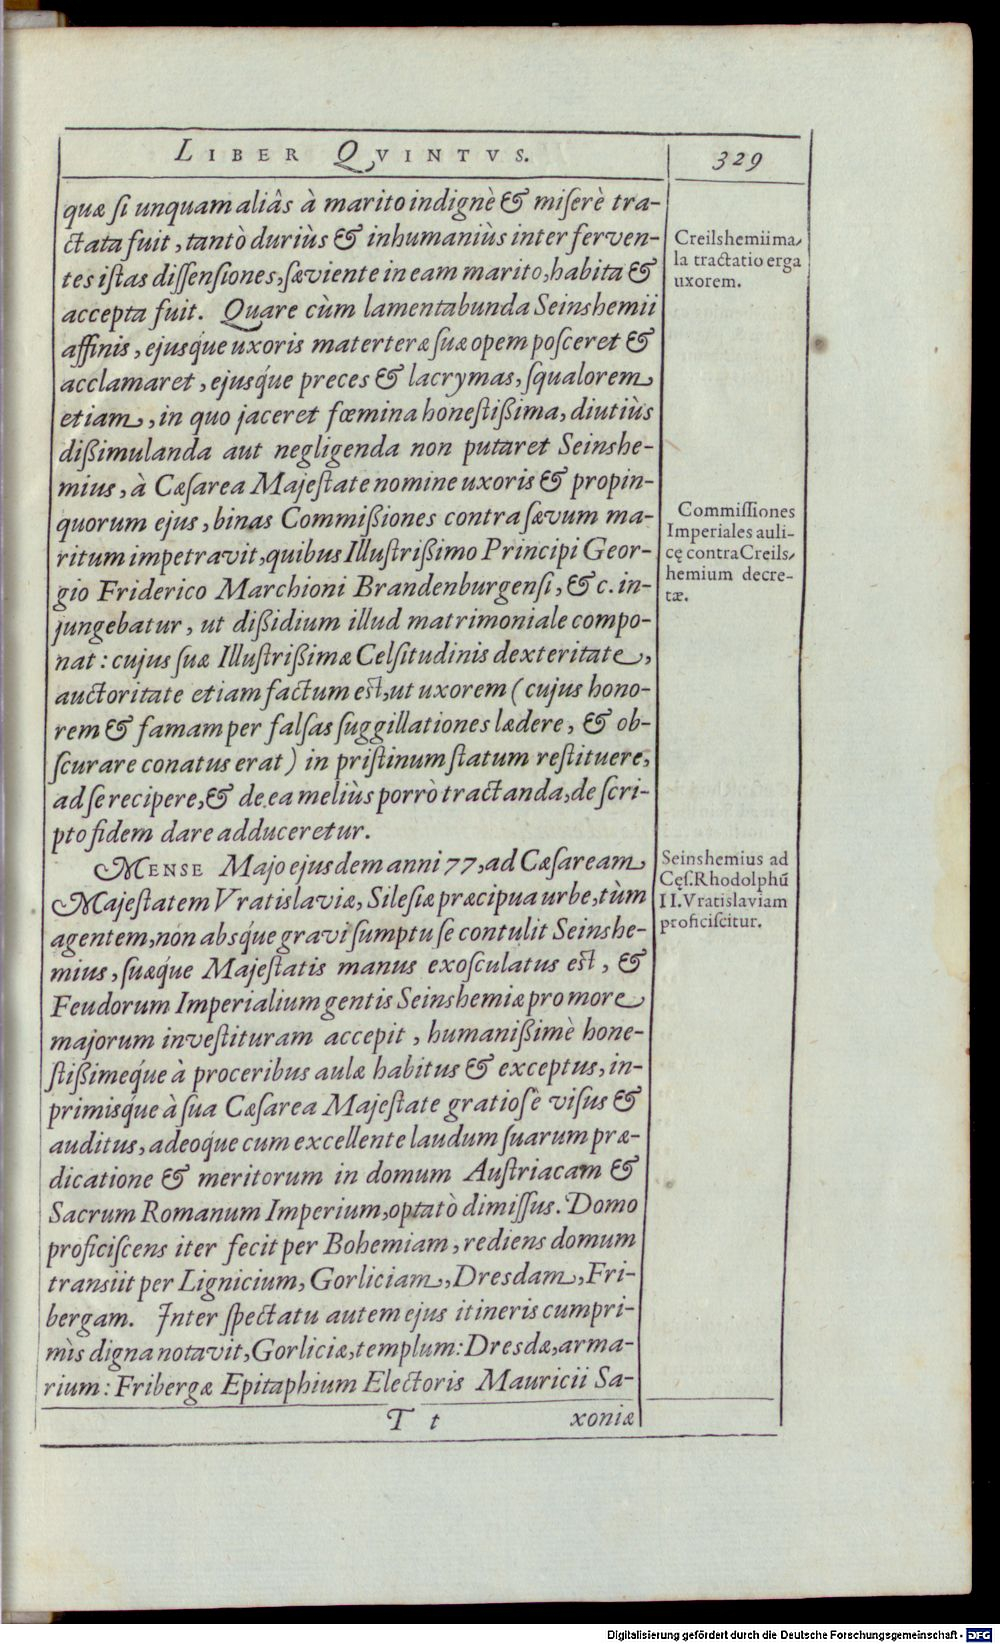 LIBER QVINTVS.
329
quæ ſi unquam aliâs à marito indignè & miſerè tra-
ctata fuit, tantò duriùs & inhumaniùs inter ferven-
tes iſtas diſſenſiones, ſæviente in eam marito, habita &
accepta fuit. Quare cùm lamentabunda Seinshemii
affinis, ejusq́ue uxoris materteræ suæ opem poſceret &
acclamaret, ejusq́ue preces & lacrymas, ſqualorem
etiam, in quo jaceret fœmina honeſtißima, diutiùs
dißimulanda aut negligenda non putaret Seinshe-
mius, à Cæſarea Majeſtate nomine uxoris & propin-
quorum ejus, binas Commißiones contra ſævum ma-
ritum impetravit, quibus Illuſtrißimo Principi Geor-
gio Friderico Marchioni Brandenburgenſi, &c. in-
jungebatur, ut dißidium illud matrimoniale compo-
nat: cujus ſuæ Illuſtrißimæ Celſitudinis dexteritate,
auctoritate etiam factum eſt, ut uxorem (cujus hono-
rem & famam per falſas ſuggillationes lædere, & ob-
ſcurare conatus erat) in priſtinum ſtatum reſtituere,
ad ſe recipere, & de ea meliùs porrò tractanda, de ſcri-
pto fidem dare adduceretur.
MENSE Majo ejusdem anni 77, ad Cæſaream
Majeſtatem Vratislaviæ, Sileſiæ præcipua urbe, tùm
agentem, non absq́ue gravi ſumptu ſe contulit Seinshe-
mius, ſuæq́ue Majeſtatis manus exoſculatus eſt, &
Feudorum Imperialium gentis Seinshemiæ pro more
majorum inveſtituram accepit, humanißimè hone-
ſtißimeq́ue à proceribus aulæ habitus & exceptus, in-
primisq́ue à ſua Cæſarea Majeſtate gratioſè viſus &
auditus, adeoq́ue cum excellente laudum ſuarum præ-
dicatione & meritorum in domum Auſtriacam &
Sacrum Romanum Imperium, optatò dimiſſus. Domo
proficiſcens iter fecit per Bohemiam, rediens domum
transiit per Lignicium, Gorliciam, Dresdam, Fri-
bergam. Inter ſpectatu autem ejus itineris cumpri-
mìs digna notavit, Gorliciæ, templum: Dresdæ, arma-
rium: Fribergæ Epitaphium Electoris Mauricii Sa-
T t
xoniæ
Creilshemii ma-
la tractatio erga
uxorem.
Commiſſiones
Imperiales auli-
cę contra Creils-
hemium decre-
tæ.
Seinshemius ad
Cęſ. Rhodolphū
II. Vratislaviam
proficiſcitur.
Digitalisierung gefördert durch die Deutsche Forschungsgemeinschaft - DFG